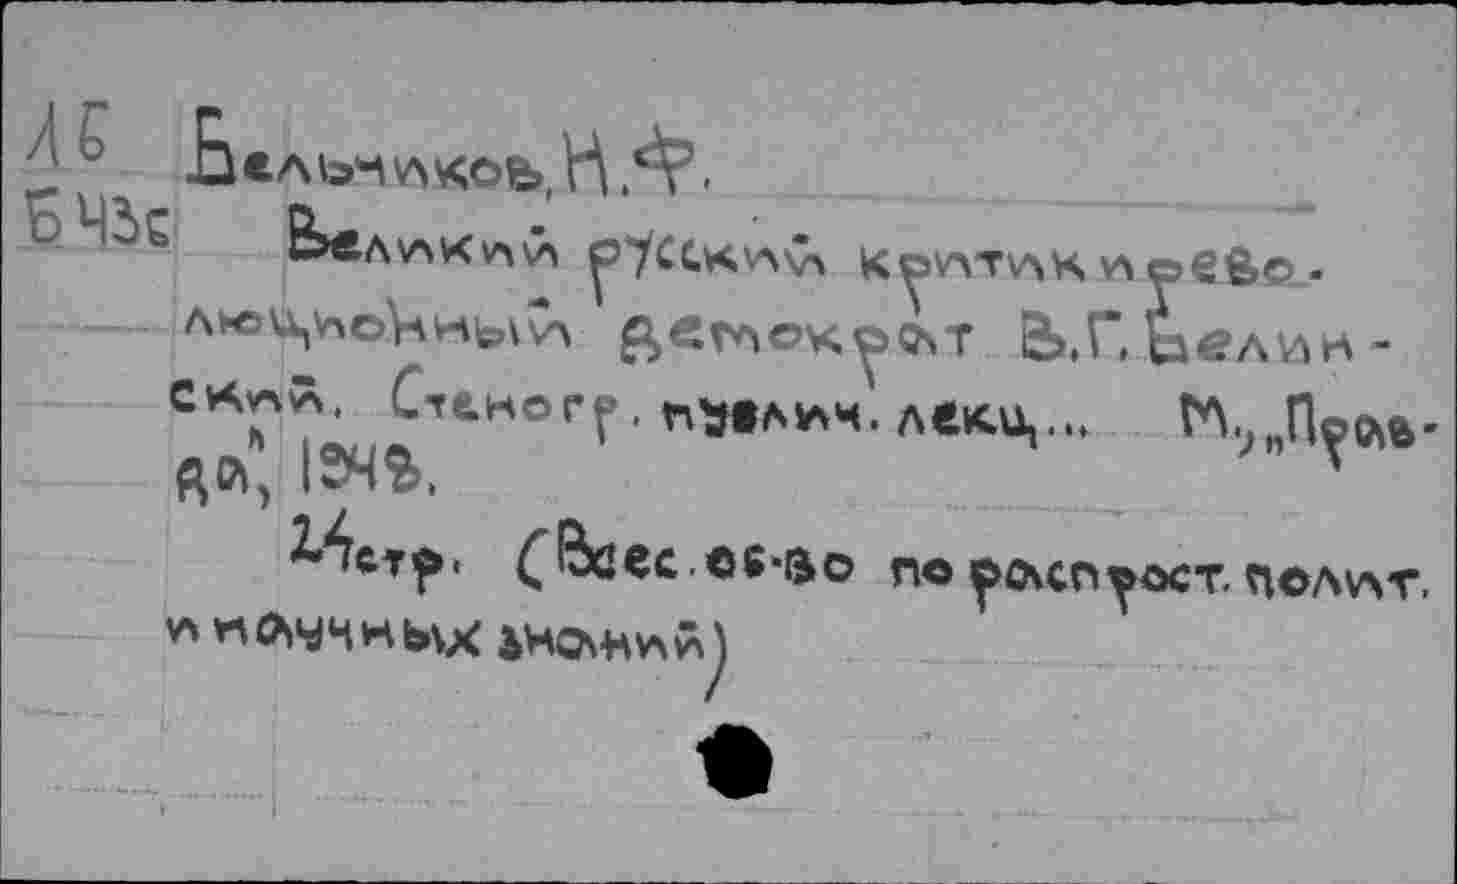 ЛБ Бельчиков, Н.Ф.
Б435 Великий русский критик и рево-
люционный демократ В.Г. Белин-
ский. Стеногр. публич. лекц... М., „Прав-
да", 1948.
24стр. (Всес. об-во по распрост. полит.
и научных знаний)